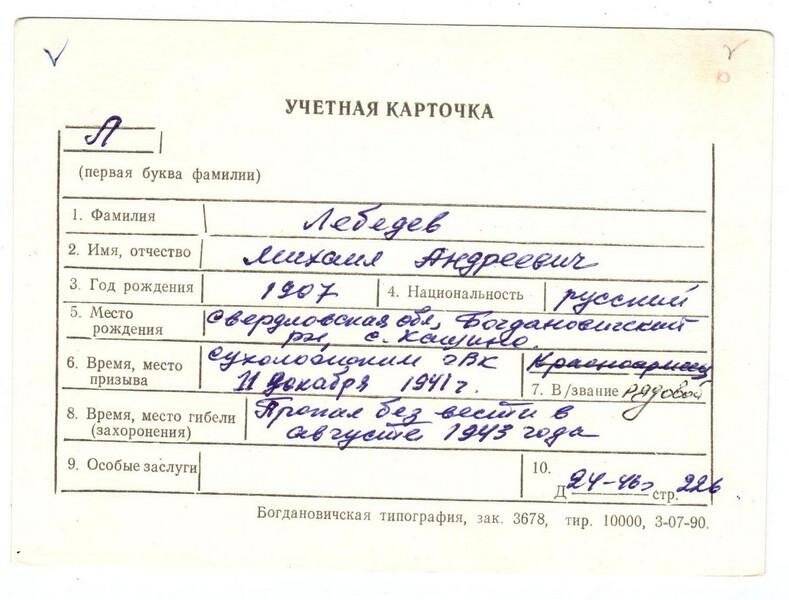 УЧЕТНАЯ КАРТОЧКА
Л
(первая буква фамилии)
1. Фамилия Лебедев
2. Имя, отчество Михаил Андреевич
3. Год рождения 1907 4. Национальность русский
5. Место рождения Свердловская обл, Богдановичский
рн, с. Кашино.
6. Время, место призыва Сухоложским РВК
11 декабря 1941 г.
Красноармеец
7. В/звание рядовой
8. Время, место гибели (захоронения) Пропал без вести в
августе 1943 года
9. Особые заслуги
10.
Д 24-46г стр. 226
Богдановичская типография, зак. 3678, тир. 10000, 3-07-90.